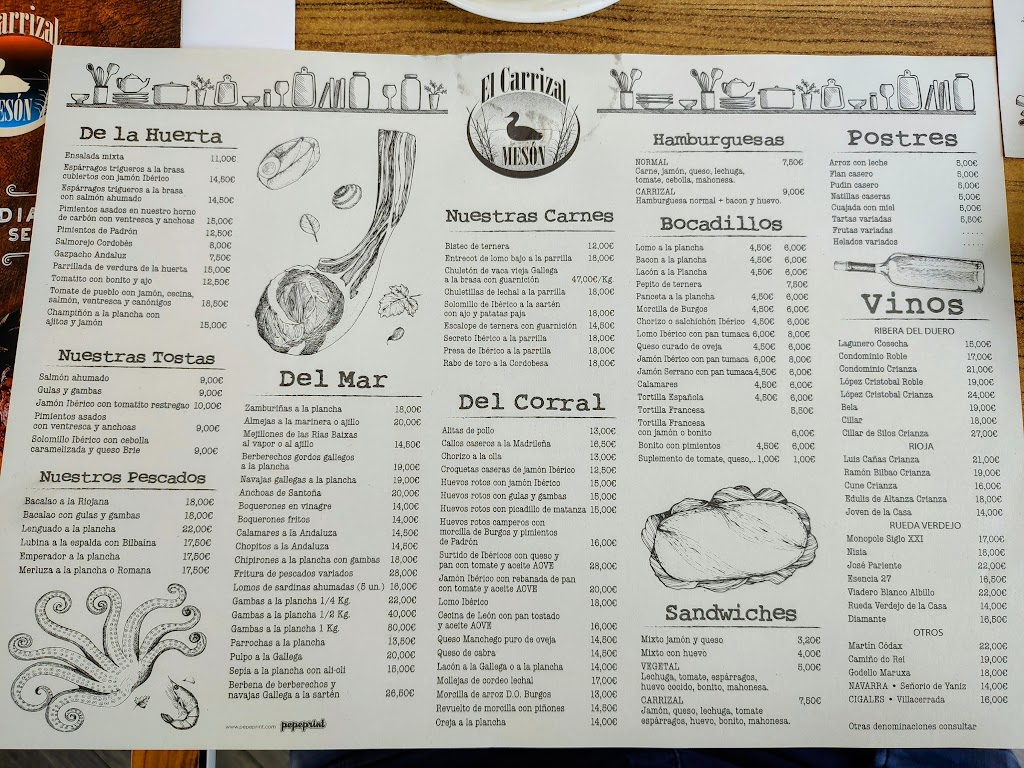 Carrizal
MESÓN
DIA
SE
El Carrizal
MESÓN
De la Huerta
Ensalada mixta 11,00€
Espárragos trigueros a la brasa
cubiertos con jamón Ibérico 14,50€
Espárragos trigueros a la brasa
con salmón ahumado 14,50€
Pimientos asados en nuestro horno
de carbón con ventresca y anchoas 15,00€
Pimientos de Padrón 12,50€
Salmorejo Cordobés 8,00€
Gazpacho Andaluz 7,50€
Parrillada de verdura de la huerta 15,00€
Tomatito con bonito y ajo 12,50€
Tomate de pueblo con jamón, cecina,
salmón, ventresca y canónigos 18,50€
Champiñón a la plancha con
ajitos y jamón 15,00€
Nuestras Tostas
Salmón ahumado 9,00€
Gulas y gambas 9,00€
Jamón Ibérico con tomatito restregao 10,00€
Pimientos asados
con ventresca y anchoas 9,00€
Solomillo Ibérico con cebolla
caramelizada y queso Brie 9,00€
Nuestros Pescados
Bacalao a la Riojana 18,00€
Bacalao con gulas y gambas 18,00€
Lenguado a la plancha 22,00€
Lubina a la espalda con Bilbaina 17,50€
Emperador a la plancha 17,50€
Merluza a la plancha o Romana 17,50€
Del Mar
Zamburiñas a la plancha 18,00€
Almejas a la marinera o ajillo 20,00€
Mejillones de las Rias Baixas
al vapor o al ajillo 14,50€
Berberechos gordos gallegos
a la plancha 19,00€
Navajas gallegas a la plancha 19,00€
Anchoas de Santoña 20,00€
Boquerones en vinagre 14,00€
Boquerones fritos 14,00€
Calamares a la Andaluza 14,50€
Chopitos a la Andaluza 14,50€
Chipirones a la plancha con gambas 18,00€
Fritura de pescados variados 28,00€
Lomos de sardinas ahumadas (8 un.) 16,00€
Gambas a la plancha 1/4 Kg. 22,00€
Gambas a la plancha 1/2 Kg. 40,00€
Gambas a la plancha 1 Kg. 80,00€
Parrochas a la plancha 13,50€
Pulpo a la Gallega 20,00€
Sepia a la plancha con ali-oli 15,00€
Berbena de berberechos y
navajas Gallega a la sartén 26,50€
www.pepeprint.com pepeprint
Nuestras Carnes
Bistec de ternera 12,00€
Entrecot de lomo bajo a la parrilla 18,00€
Chuletón de vaca vieja Gallega
a la brasa con guarnición 47,00€/Kg.
Chuletillas de lechal a la parrilla 18,00€
Solomillo de Ibérico a la sartén
con ajo y patatas paja 18,00€
Escalope de ternera con guarnición 14,50€
Secreto Ibérico a la parrilla 18,00€
Presa de Ibérico a la parrilla 18,00€
Rabo de toro a la Cordobesa 18,00€
Del Corral
Alitas de pollo 13,00€
Callos caseros a la Madrileña 16,50€
Chorizo a la olla 13,00€
Croquetas caseras de jamón Ibérico 12,50€
Huevos rotos con jamón Ibérico 15,00€
Huevos rotos con gulas y gambas 15,00€
Huevos rotos con picadillo de matanza 15,00€
Huevos rotos camperos con
morcilla de Burgos y pimientos
de Padrón 16,00€
Surtido de Ibéricos con queso y
pan con tomate y aceite AOVE 28,00€
Jamón Ibérico con rebanada de pan
con tomate y aceite AOVE 20,00€
Lomo Ibérico 18,00€
Cecina de León con pan tostado
y aceite AOVE 16,00€
Queso Manchego puro de oveja 14,50€
Queso de cabra 14,50€
Lacón a la Gallega o a la plancha 14,00€
Mollejas de cordeo lechal 17,00€
Morcilla de arroz D.O. Burgos 13,00€
Revuelto de morcilla con piñones 14,50€
Oreja a la plancha 14,00€
Hamburguesas
NORMAL 7,50€
Carne, jamón, queso, lechuga,
tomate, cebolla, mahonesa.
CARRIZAL 9,00€
Hamburguesa normal + bacon y huevo.
Bocadillos
Lomo a la plancha 4,50€ 6,00€
Bacon a la plancha 4,50€ 6,00€
Lacón a la Plancha 4,50€ 6,00€
Pepito de ternera 7,50€
Panceta a la plancha 4,50€ 6,00€
Morcilla de Burgos 4,50€ 6,00€
Chorizo o salchichón Ibérico 4,50€ 6,00€
Lomo Ibérico con pan tumaca 6,00€ 8,00€
Queso curado de oveja 4,50€ 6,00€
Jamón Ibérico con pan tumaca 6,00€ 8,00€
Jamón Serrano con pan tumaca 4,50€ 6,00€
Calamares 4,50€ 6,00€
Tortilla Española 4,50€ 6,00€
Tortilla Francesa 5,50€
Tortilla Francesa
con jamón o bonito 6,00€
Bonito con pimientos 4,50€ 6,00€
Suplemento de tomate, queso,.. 1,00€ 1,00€
Sandwiches
Mixto jamón y queso 3,20€
Mixto con huevo 4,00€
VEGETAL 5,00€
Lechuga, tomate, espárragos,
huevo cocido, bonito, mahonesa.
CARRIZAL 7,50€
Jamón, queso, lechuga, tomate
espárragos, huevo, bonito, mahonesa.
Postres
Arroz con leche 5,00€
Flan casero 5,00€
Pudin casero 5,00€
Natillas caseras 5,00€
Cuajada con miel 5,00€
Tartas variadas 5,50€
Frutas variadas .....
Helados variados .....
Vinos
RIBERA DEL DUERO
Lagunero Cosecha 15,00€
Condominio Roble 17,00€
Condominio Crianza 21,00€
López Cristobal Roble 19,00€
López Cristobal Crianza 24,00€
Bela 19,00€
Cillar 18,00€
Cillar de Silos Crianza 27,00€
RIOJA
Luis Cañas Crianza 21,00€
Ramón Bilbao Crianza 19,00€
Cune Crianza 16,00€
Edulis de Altanza Crianza 18,00€
Joven de la Casa 14,00€
RUEDA VERDEJO
Monopole Siglo XXI 17,00€
Nisia 18,00€
José Pariente 22,00€
Esencia 27 16,50€
Viadero Blanco Albillo 22,00€
Rueda Verdejo de la Casa 14,00€
Diamante 16,50€
OTROS
Martín Códax 22,00€
Camiño do Rei 19,00€
Godello Maruxa 18,00€
NAVARRA • Señorio de Yaniz 14,00€
CIGALES • Villacerrada 16,00€
Otras denominaciones consultar